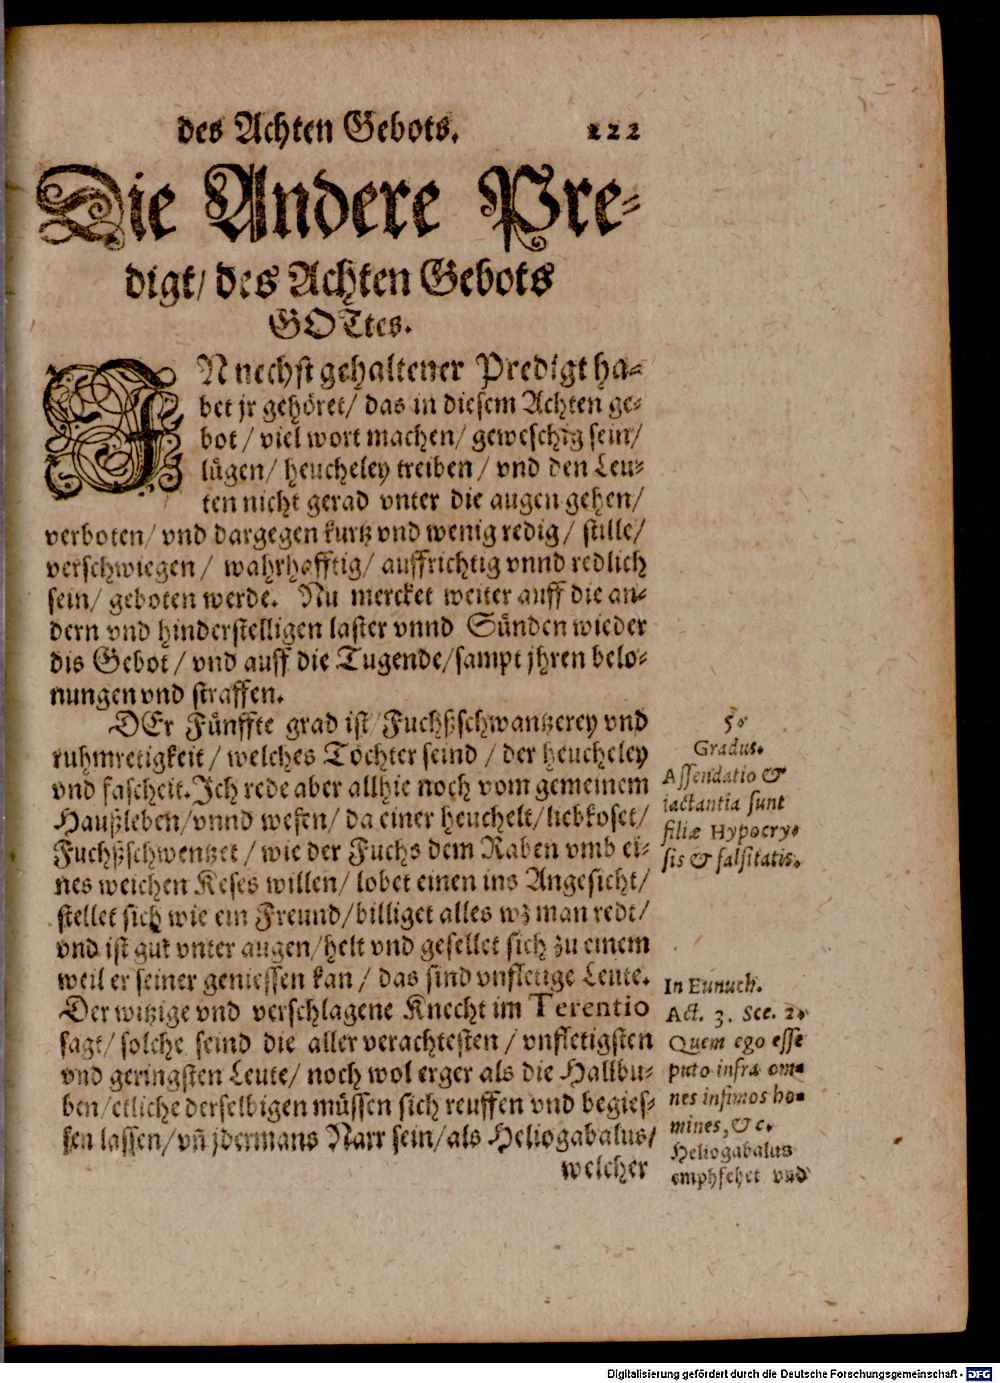 des Achten Gebots. 222
Die Andere Pre-
digt/ des Achten Gebots
GOTtes.
IN nechst gehaltener Predigt ha-
bet jr gehöret/ das in diesem Achten ge-
bot/ viel wort machen/ geweschig sein/
lügen/ heucheley treiben/ vnd den Leu-
ten nicht gerad vnter die augen gehen/
verboten/ vnd dargegen kurtz vnd wenig redig/ stille/
verschwiegen/ wahrhafftig/ auffrichtig vnnd redlich
sein/ geboten werde. Nu mercket weiter auff die an-
dern vnd hinderstelligen laster vnnd Sünden wieder
dis Gebot/ vnd auff die Tugende/ sampt jhren belo-
nungen vnd straffen.
DEr Fünffte grad ist/ Fuchßschwantzerey vnd
ruhmretigkeit/ welches Töchter seind/ der heucheley
vnd fascheit. Ich rede aber allhie noch vom gemeinem
Haußleben/ vnnd wesen/ da einer heuchelt/ liebkoset/
Fuchßschwentzet/ wie der Fuchs dem Raben vmb ei-
nes weichen Keses willen/ lobet einen ins Angesicht/
stellet sich wie ein Freund/ billiget alles wz man redt/
vnd ist gut vnter augen/ helt vnd gesellet sich zu einem
weil er seiner geniessen kan/ das sind vnfletige Leute.
Der witzige vnd verschlagene Knecht im Terentio
sagt/ solche seind die aller verachtesten/ vnfletigsten
vnd geringsten Leute/ noch wol erger als die Hallbu-
ben/ etliche derselbigen müssen sich reuffen vnd begies-
sen lassen/ vñ jdermans Narr sein/ als Heliogabalus/
welcher
5.
Gradus.
Assendatio &
iactantia sunt
filiæ Hypocry-
sis & falsitatis.
In Eunuch.
Act. 3. Sce. 2.
Quem ego esse
puto infra om-
nes infimos ho-
mines, & c.
Heliogabalus
emphfehet vnd
Digitalisierung gefördert durch die Deutsche Forschungsgemeinschaft - DFG